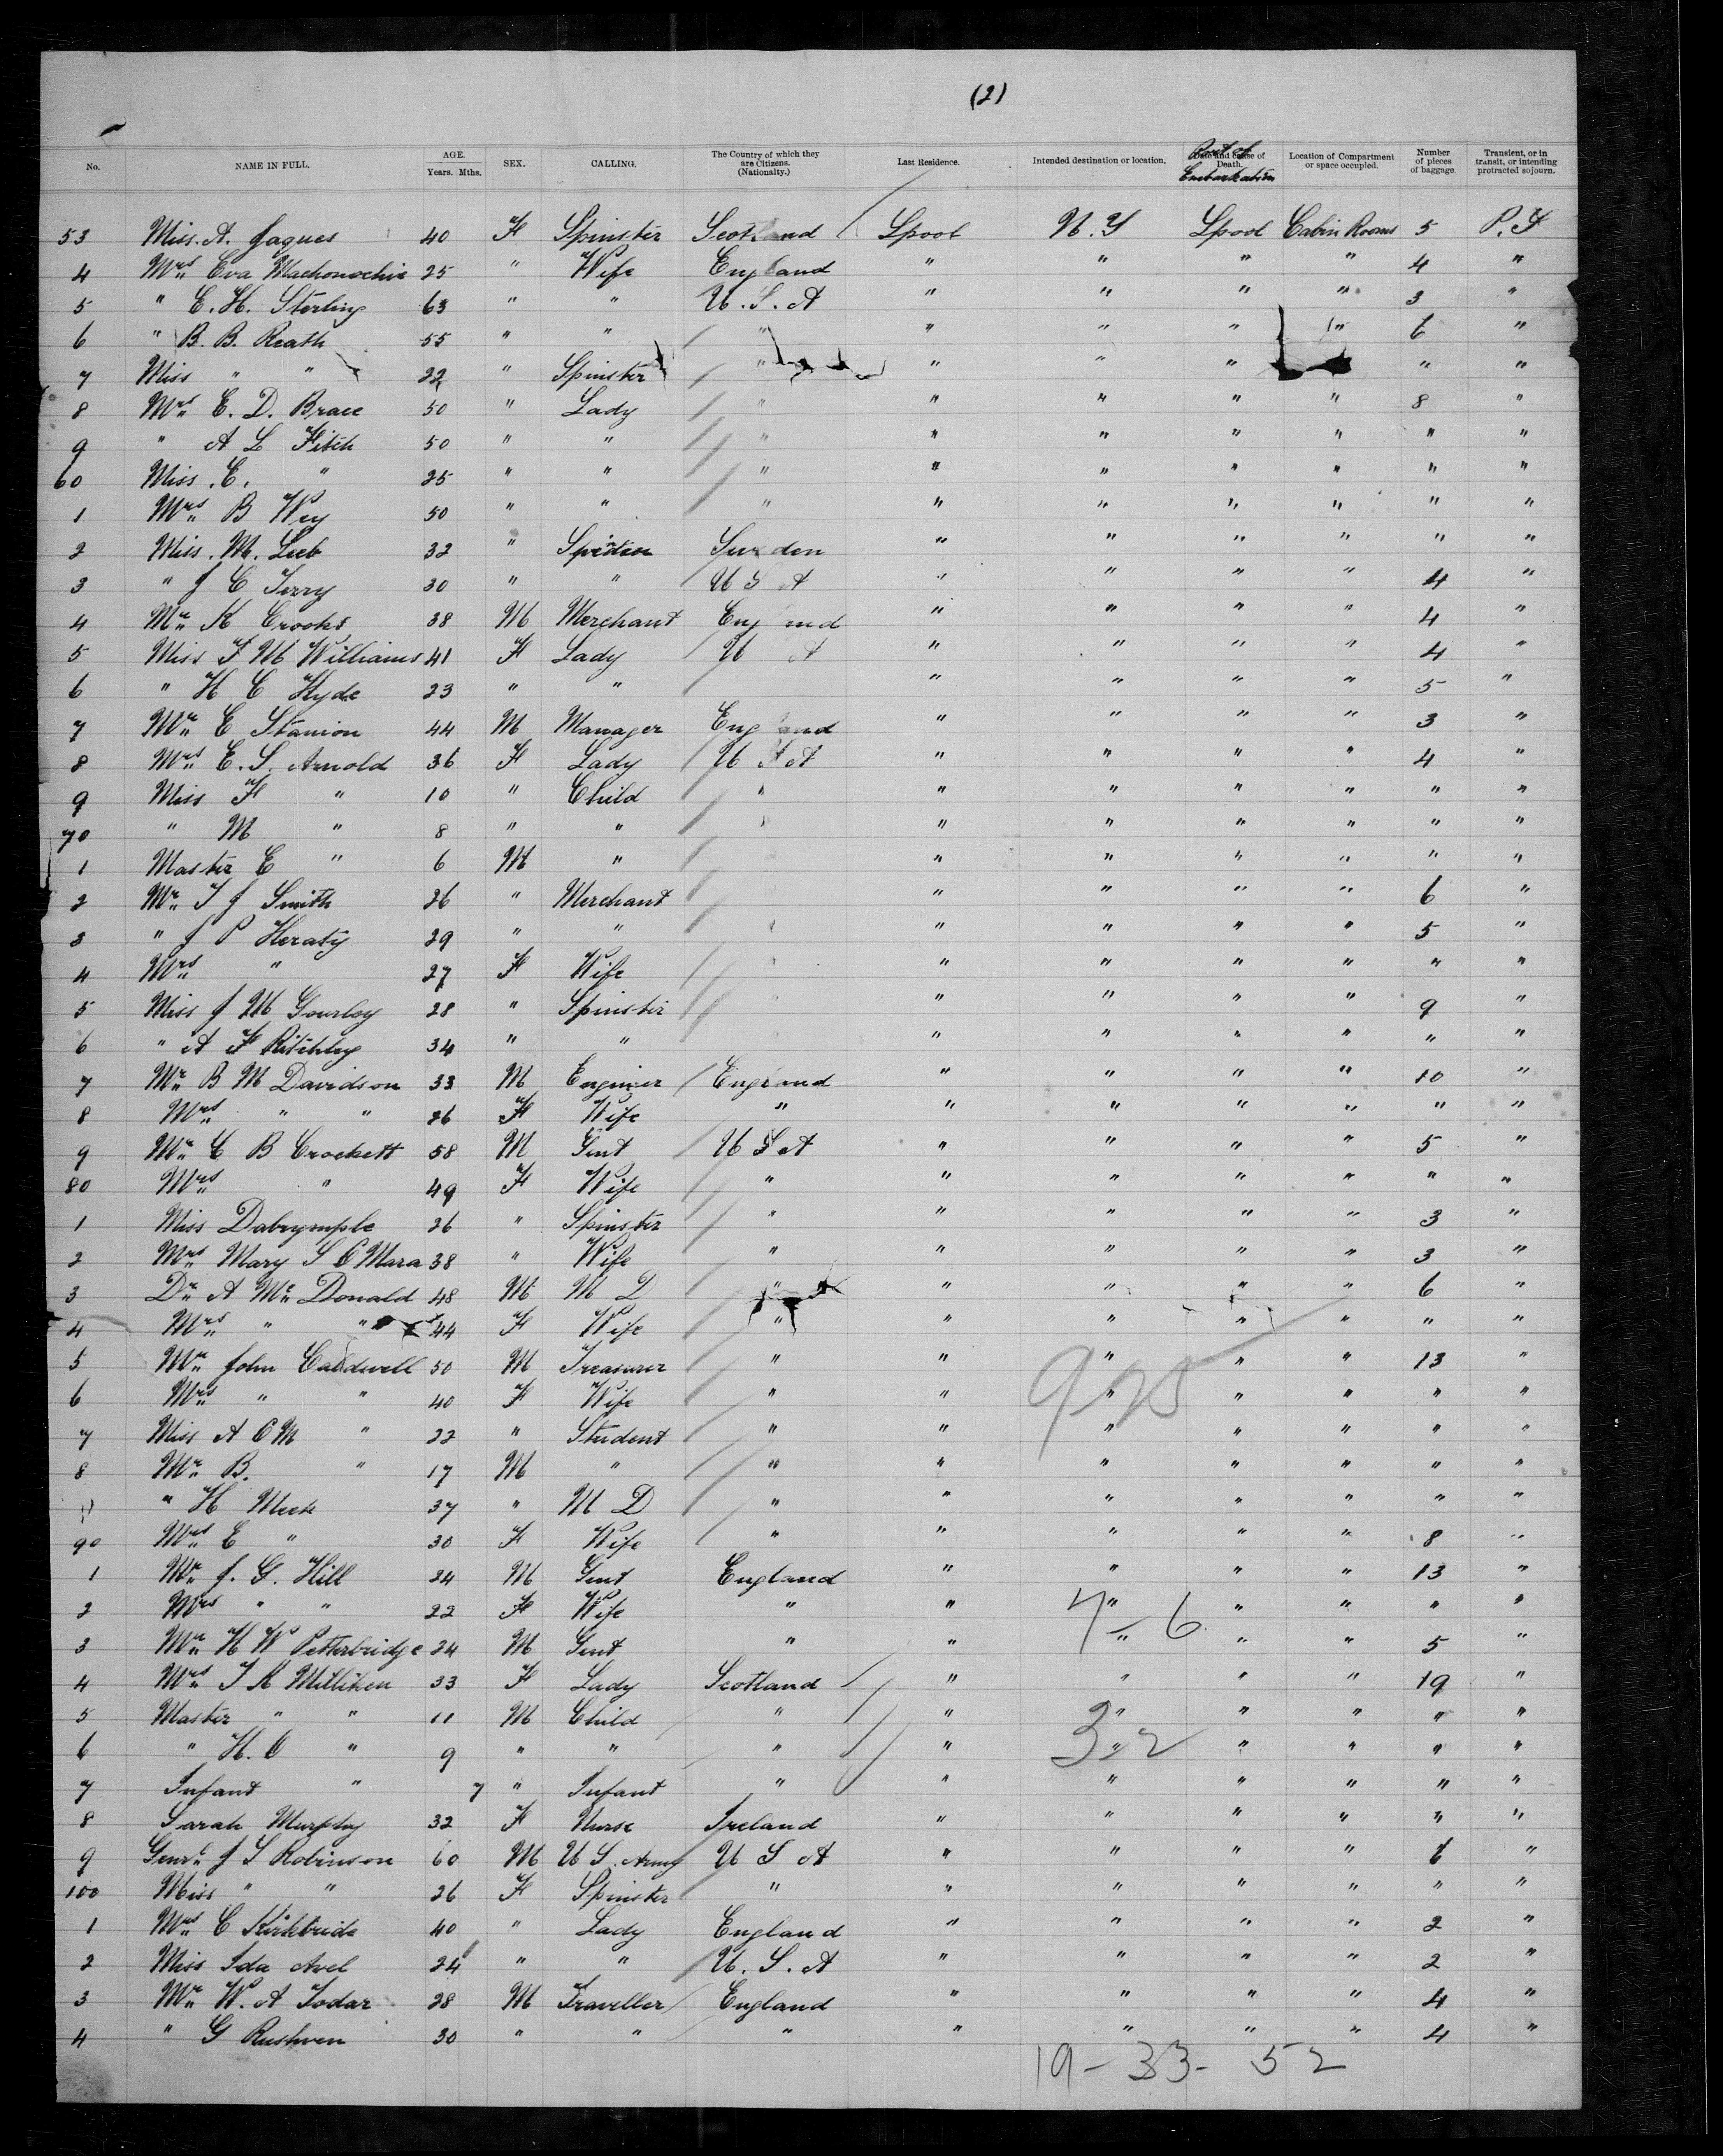 (2)
No. NAME IN FULL. AGE. Years. Mths. SEX. CALLING. The Country of which they are Citizens. (Nationalty.) Last Residence. Intended destination or location, Port of Embarkation Location of Compartment or space occupied. Number of pieces of baggage. Transient, or in transit, or intending protracted sojourn.
53 Miss. A. Jaques 40 F Spinster Scotland Lpool N.Y Lpool Cabin Rooms 5 P.S
4 Mrs Eva Machonochie 25 " Wife England " " " " 4 "
5 " E. H. Sterling 63 " " U.S.A " " " " 3 "
6 " B. B. Reath 55 " " " " " " " 6 "
7 Miss " " 22 " Spinster " " " " " "
8 Mrs E. D. Brace 50 " Lady " " " " " 8 "
9 " A L Fitch 50 " " " " " " " " "
60 Miss. E. " 25 " " " " " " " " "
1 Mrs B Wey 50 " " " " " " " " "
2 Miss. M. Leeb 32 " Sweden " " " " " "
3 " J C Terry 30 " " U S A " " " " 4 "
4 Mr K Crooks 38 M Merchant England " " " " 4 "
5 Miss F M Williams 41 F Lady U A " " " " 4 "
6 " H C Hyde 23 " " " " " " 5 "
7 Mr E Stanion 44 M Manager England " " " " 3 "
8 Mrs E. S. Arnold 36 F Lady U S A " " " " 4 "
9 Miss F " 10 " Child " " " " " " "
70 " M " 8 " " " " " " " " "
1 Master E " 6 M " " " " " " "
2 Mr T J Smith 26 " Merchant " " " " 6 "
3 " J P Heraty 29 " " " " " " " 5 "
4 Mrs " 27 F Wife " " " " " " "
5 Miss J M Gourley 28 " Spinster " " " " 9 "
6 " A F Ritchley 34 " " " " " " " "
7 Mr B M Davidson 33 M Engineer England " " " " 10 "
8 Mrs " " 26 F Wife " " " " " " "
9 Mr C B Crockett 58 M Gent U S A " " " " 5 "
80 Mrs " 49 F Wife " " " " " " "
1 Miss Dabrymple 26 " Spinster " " " " " 3 "
2 Mrs Mary S O'Mara 38 " Wife " " " " " 3 "
3 Dr A McDonald 48 M M D " " " " " 6 "
4 Mrs " " 44 F Wife " " " " " " "
5 Mr John Caldwell 50 M Treasurer " " " " " 13 "
6 Mrs " " 40 F Wife " " " " " " "
7 Miss A C M " 22 " Student " " " " " " "
8 Mr B. " 17 M " " " " " " " "
" H Meek 37 " M D " " " " " " "
90 Mrs E " 30 F Wife " " " " " 8 "
1 Mr J. G. Hill 24 M Gent England " " " " 13 "
2 Mrs " " 22 F Wife " " " " " " "
7 - 6
3 Mr H W Petterbridge 24 M Gent " " " " " 5 "
4 Mrs T K Milliken 33 F Lady Scotland " " " " 19 "
5 Master " " 11 M Child " " " " " " "
6 " H. C " 9 " " " " " " " " "
3 - 2
7 Infant " 7 " Infant " " " " " " "
8 Sarah Murphy 32 F Nurse Ireland " " " " " "
9 Genrl J S Robinson 60 M U S. Army U S A " " " " 6 "
100 Miss " " 26 F Spinster " " " " " " "
1 Mrs C Kirkbride 40 " Lady England " " " " 2 "
2 Miss Ida Avel 24 " " U. S. A " " " " 2 "
3 Mr W. A Todar 28 M Traveller England " " " " 4 "
4 " G Rushven 30 " " " " " " " 4 "
19 - 33 - 52